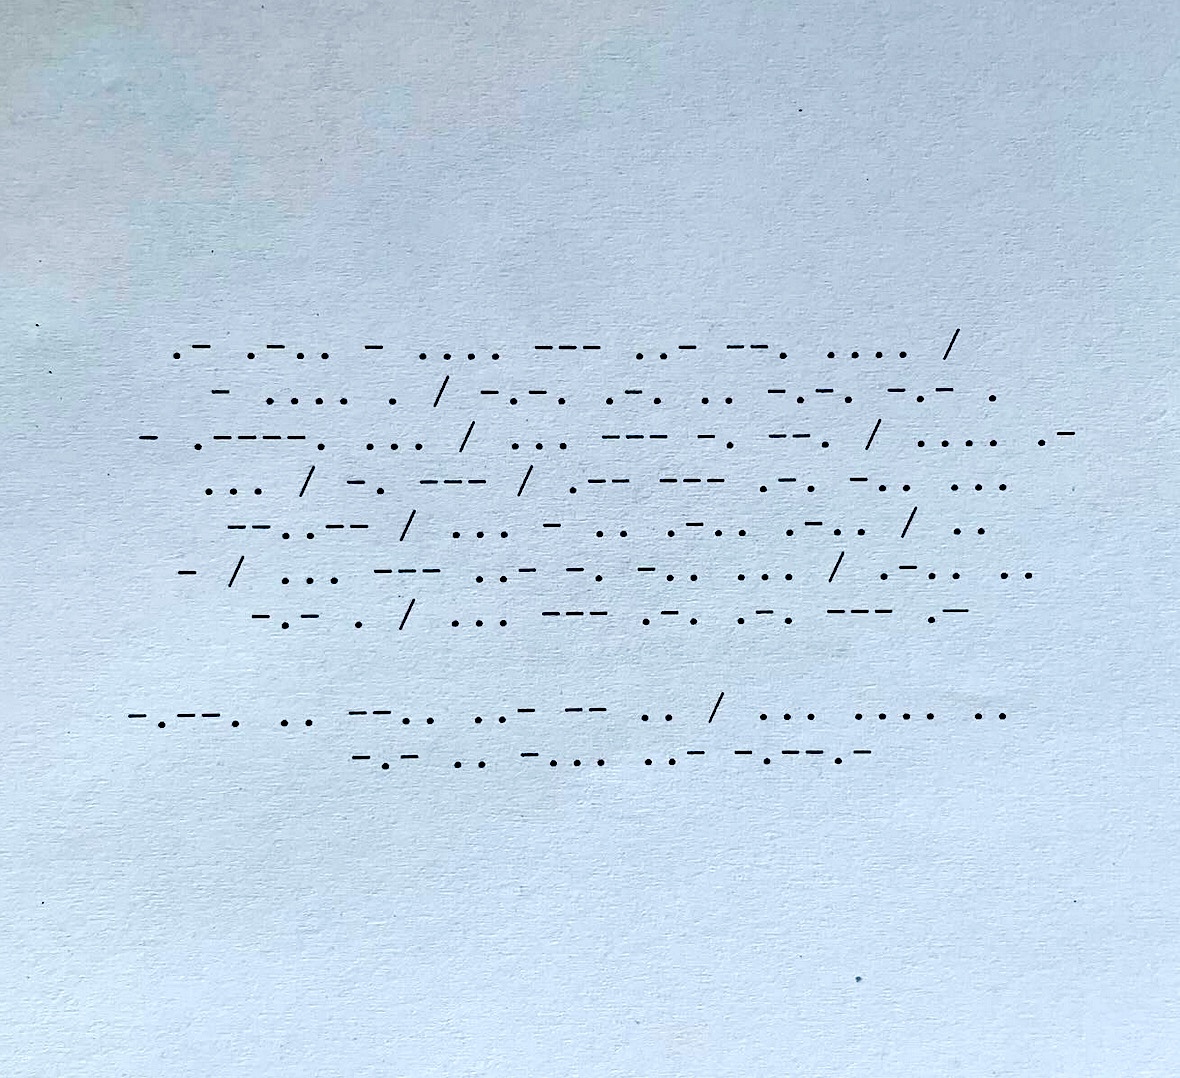 .- .-.. - .... --- ..- --. .... /
- .... . / -.-. .-. .. -.-. -.- .
- .----. ... / ... --- -. --. / .... .-
... / -. --- / .-- --- .-. -.. ...
--..-- / ... - .. .-.. .-.. / ..
- / ... --- ..- -. -.. ... / .-.. ..
-.- . / ... --- .-. .-. --- .-
-.--. .. --.. ..- -- .. / ... .... ..
-.- .. -... ..- -.--.-